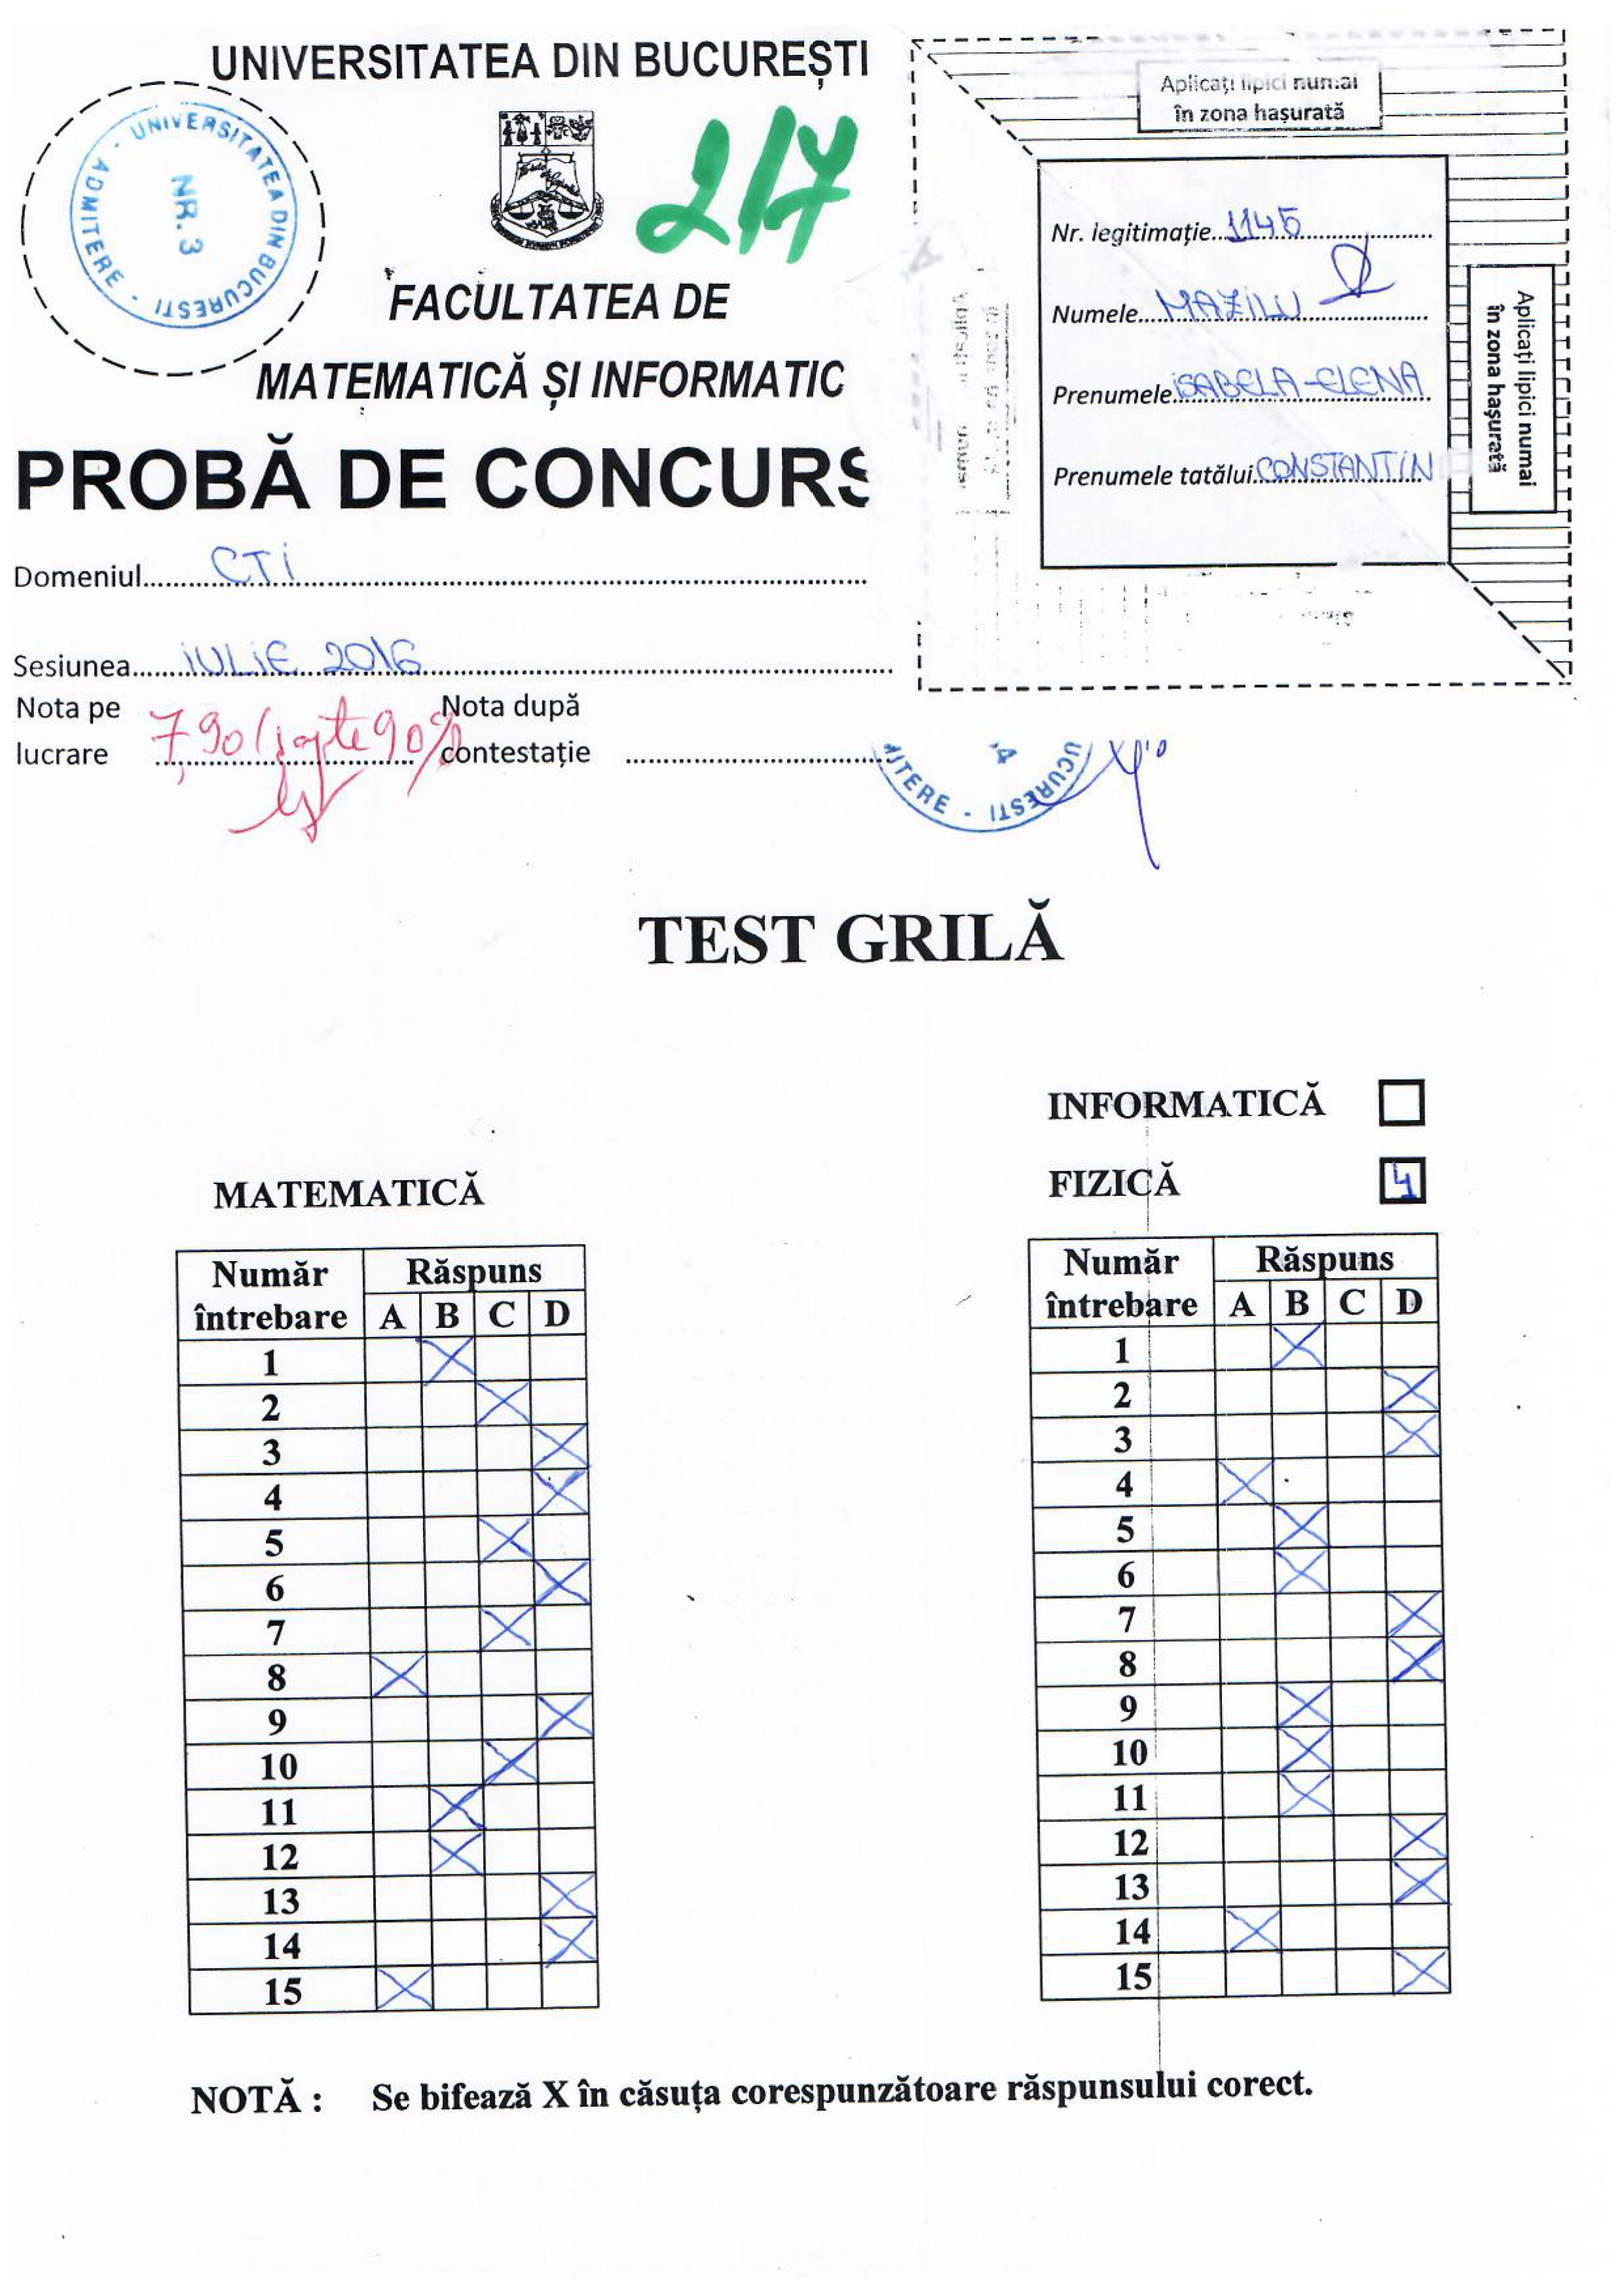 UNIVERSITATEA DIN BUCUREȘTI
UNIVERSITATEA DIN BUCURESTI - ADMITERE -
NR. 3
217
FACULTATEA DE
MATEMATICĂ ȘI INFORMATIC
PROBĂ DE CONCURS
Domeniul CTI
Sesiunea IULIE 2016
Nota pe lucrare 7,90 (șapte 90%
Nota după contestație
Aplicați lipici numai
în zona hașurată
Nr. legitimație 1145
Numele MAZILU
Prenumele ISABELA-ELENA
Prenumele tatălui CONSTANTIN
Aplicați lipici numai
în zona hașurată
UCURESTI - MITERE
TEST GRILĂ
INFORMATICĂ
FIZICĂ 4
MATEMATICĂ
Număr întrebare Răspuns
A B C D
1 X
2 X
3 X
4 X
5 X
6 X
7 X
8 X
9 X
10 X
11 X
12 X
13 X
14 X
15 X
Număr întrebare Răspuns
A B C D
1 X
2 X
3 X
4 X
5 X
6 X
7 X
8 X
9 X
10 X
11 X
12 X
13 X
14 X
15 X
NOTĂ : Se bifează X în căsuța corespunzătoare răspunsului corect.